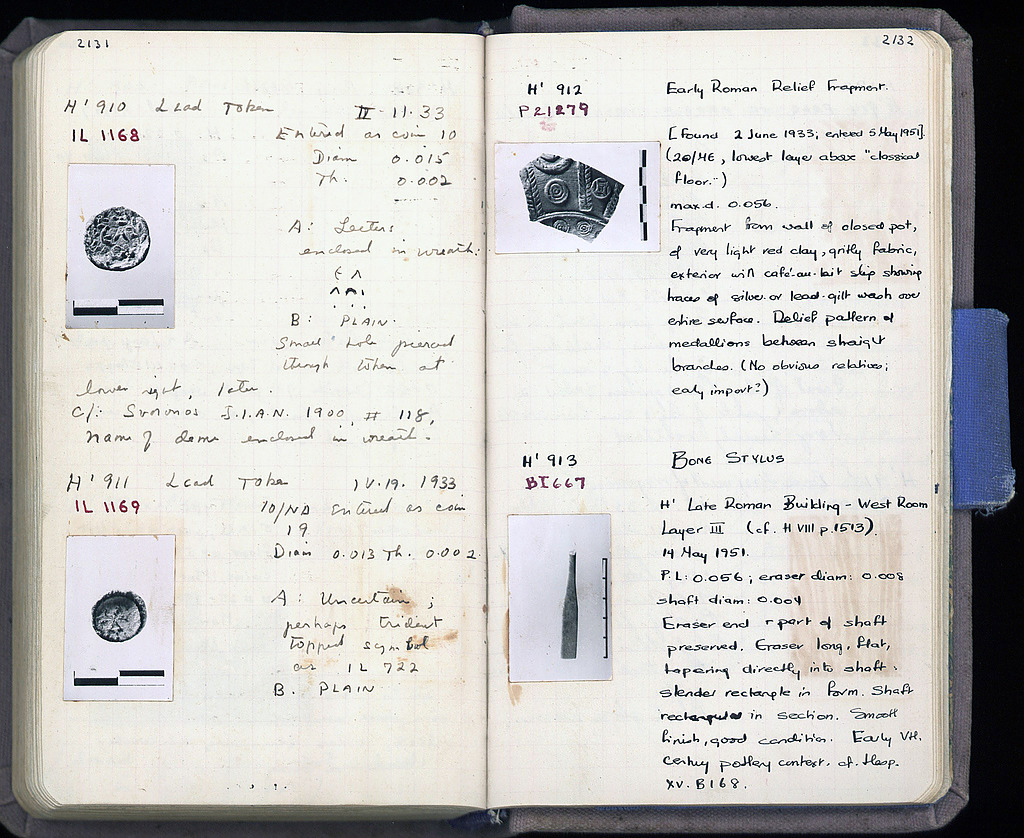 2131
H' 910 Lead Token II-11-33
IL 1168 Entered as coin 10
Diam 0.015
Th. 0.002
A: Letters
enclosed in wreath:
B: PLAIN.
Small hole pierced
through token at
lower right, later.
Cf: Svoronos J.I.A.N. 1900, # 118,
name of deme enclosed in wreath.
H' 911 Lead Token IV.19.1933
IL 1169 10/ΝΔ Entered as coin
19.
Diam 0.013 Th. 0.002
A: Uncertain;
perhaps trident
topped symbol
as IL 722
B. PLAIN
2132
H' 912 Early Roman Relief Fragment.
P21279
[Found 2 June 1933; entered 5 May 1951].
(20/ΜΕ, lowest layer above "classical
floor.")
max.d. 0.056.
Fragment from wall of closed pot,
of very light red clay, gritty fabric,
exterior with café-au-lait slip showing
traces of silver- or lead-gilt wash over
entire surface. Relief pattern of
medallions between straight
branches. (No obvious relatives;
early import?)
H' 913 BONE STYLUS
BI667
H' Late Roman Building - West Room
Layer III (cf. H VIII p.1513).
14 May 1951.
P.L: 0.056; eraser diam: 0.008
shaft diam: 0.004
Eraser end + part of shaft
preserved. Eraser long, flat,
tapering directly into shaft:
slender rectangle in form. Shaft
rectangular in section. Smooth
finish, good condition. Early VIth.
century pottery context. cf. Hesp.
XV. B168.